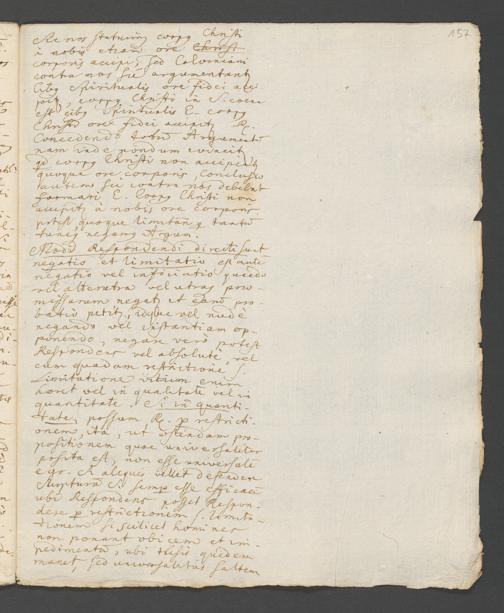 157
Re nos statuimus corpus Christi
à nobis etiam ore Christi
corporis accipi, sed Calviniani
contra nos sic argumentant
Cibus Spiritualis ore fidei acci
pit, corpus Christi in S. coena
est cibus Spiritualis E. corpus
Christi ore fidei accipit. R.
Concedendo totum Argumentum
nam inde nondum evincit
qd corpus Christi non accipiatur
quoque ore corporis, Conclusio
autem sic contra nos debebat
formari E. Corpus Christi non
accipit à nobis ore corporis
potest quoque limitari tantum
negans Argum.
Modi Respondendi directi sunt
negatio et limitatio
negatio vel inficiatio quando
vel alterutra vel utraq prae-
missarum negat et eam pro-
batio petit, idque vel nude
negando vel instantiam op-
ponendo, negare vero potest
Respondens vel absolute, vel
cum quadam restrictione s.
Limitatione vitium enim
haeret vel in qualitate vel in
quantitate. Si in quanti-
tate, possum R. per restricti-
onem, ita, ut ostendam pro-
positionem quae universaliter
posita est, non esse universale
e. gr. Si aliquis vellet
Scriptura S. semp esse efficace
ubi Respondens posset Respon-
dere p restrictionem s. limita-
tionem si scilicet homines
non ponant obicem et im
pedimentum, ubi thesis quidem
manet, sed universalitas saltem